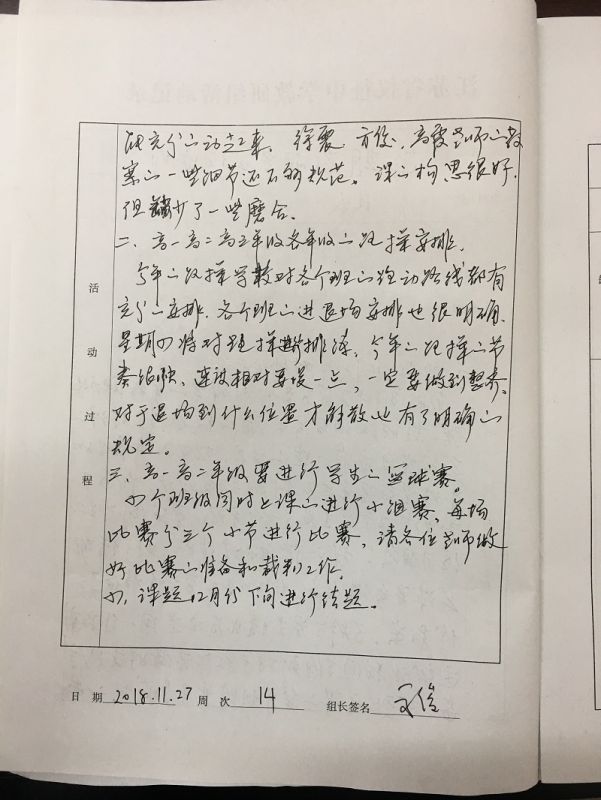 充分的动起来。徐震、方俊、高雯老师的教
案的一些细节还不够规范。课的构思很好，
但缺少了一些磨合。
二、高一高二高三年级各年级的跑操安排。
今年的跑操学校对各个班的跑动路线都有
充分的安排，各个班的进退场安排也很明确。
星期四将对跑操进行排练，今年的跑操的节
奏很快，速度相对要慢一点，一定要做到整齐。
对于退场到什么位置才解散也有了明确的
规定。
三、高一高二年级要进行学生的篮球赛。
四个班级同时上课的进行小组赛，每场
比赛分三个小节进行比赛，请各位老师做
好比赛的准备和裁判工作。
四、课题12月份下旬进行结题。
活动过程
日期 2018.11.27 周次 14 组长签名